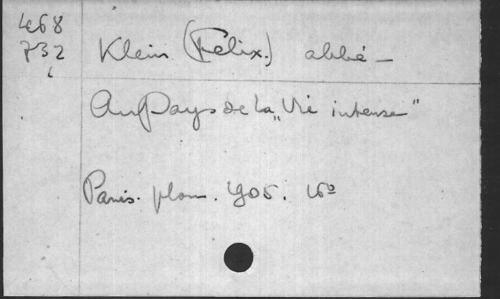 468
732
Klein (Félix.) abbé –
Au Pays de la „Vie intense"
Paris. plon. 905. 16º